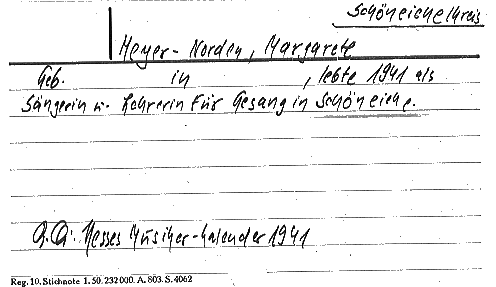 Schöneiche/Kreis
Heyer-Norden, Margarete
Geb. in , lebte 1941 als
Sängerin u. Lehrerin für Gesang in Schöneiche.
Q.Qu.: Hesses Musiker-Kalender 1941
Reg. 10. Stichnote 1. 50. 232000. A. 803. S. 4062